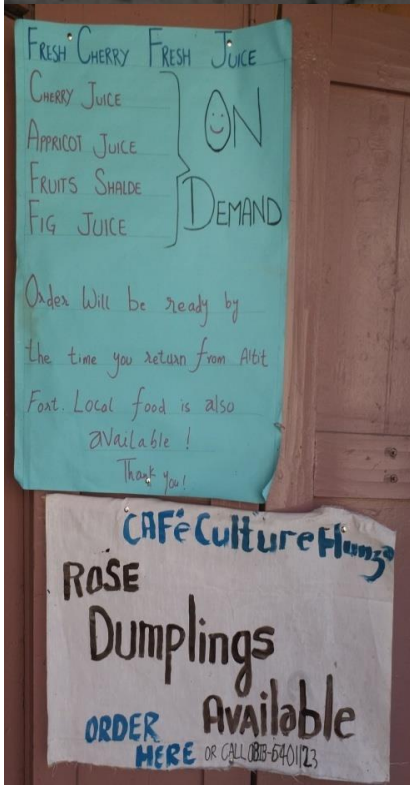 FRESH CHERRY FRESH JUICE
CHERRY JUICE
APPRICOT JUICE
FRUITS SHALDE
FIG JUICE
ON
DEMAND
Order Will be ready by
the time you return from Altit
Fort. Local food is also
available !
Thank you!
CAFé Culture Hunza
ROSE
Dumplings
Available
ORDER
HERE OR CALL